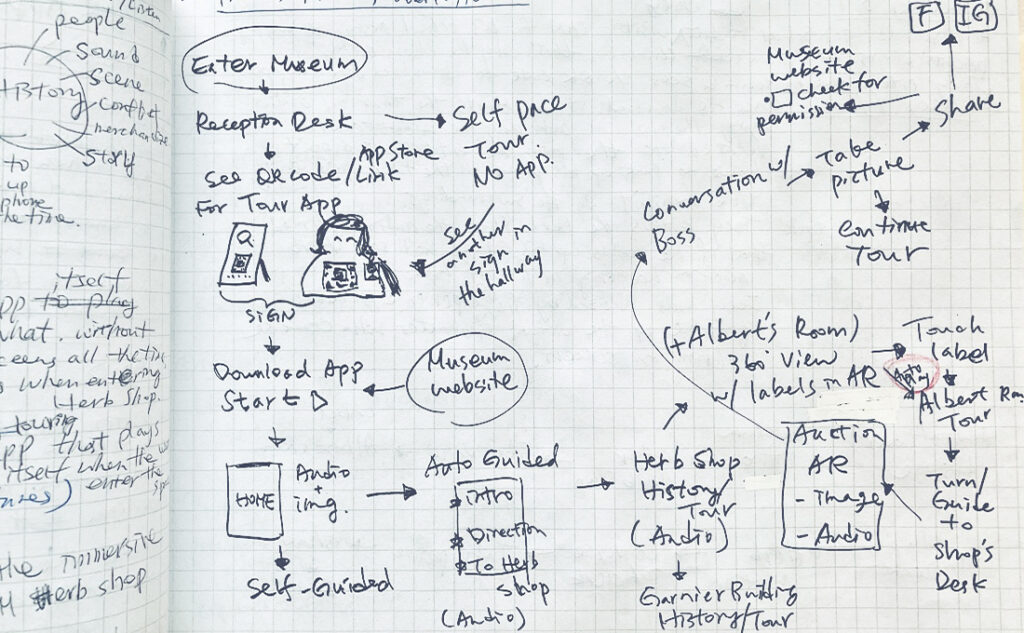 people
Sound
Scene
Conflict
merchandise
Story
to
up
phone
the time.
itself
to play
what. without
all the time
when entering
Herb Shop.
touring
that plays
itself when the
enter the
the immersive
Herb shop
Enter Museum
Reception Desk
Self pace
Tour
No App.
See QR code/App Store
Link
For Tour App
SIGN
See
another
sign in
the hallway
Download App
Start
Museum
website
HOME
Audio
+
img.
Self-Guided
Auto Guided
intro
Direction
To Herb
Shop
(Audio)
Herb Shop
History/
Tour
(Audio)
Garnier Building
History/Tour
(+Albert's Room)
360 View
w/ labels in AR
Touch
label
Auto
play
Albert Room
Tour
Turn/
Guide
to
Shop's
Desk
Auction
AR
- image
- Audio
Conversation w/
Boss
Take
picture
Continue
Tour
Share
F
IG
Museum
website
check for
permission